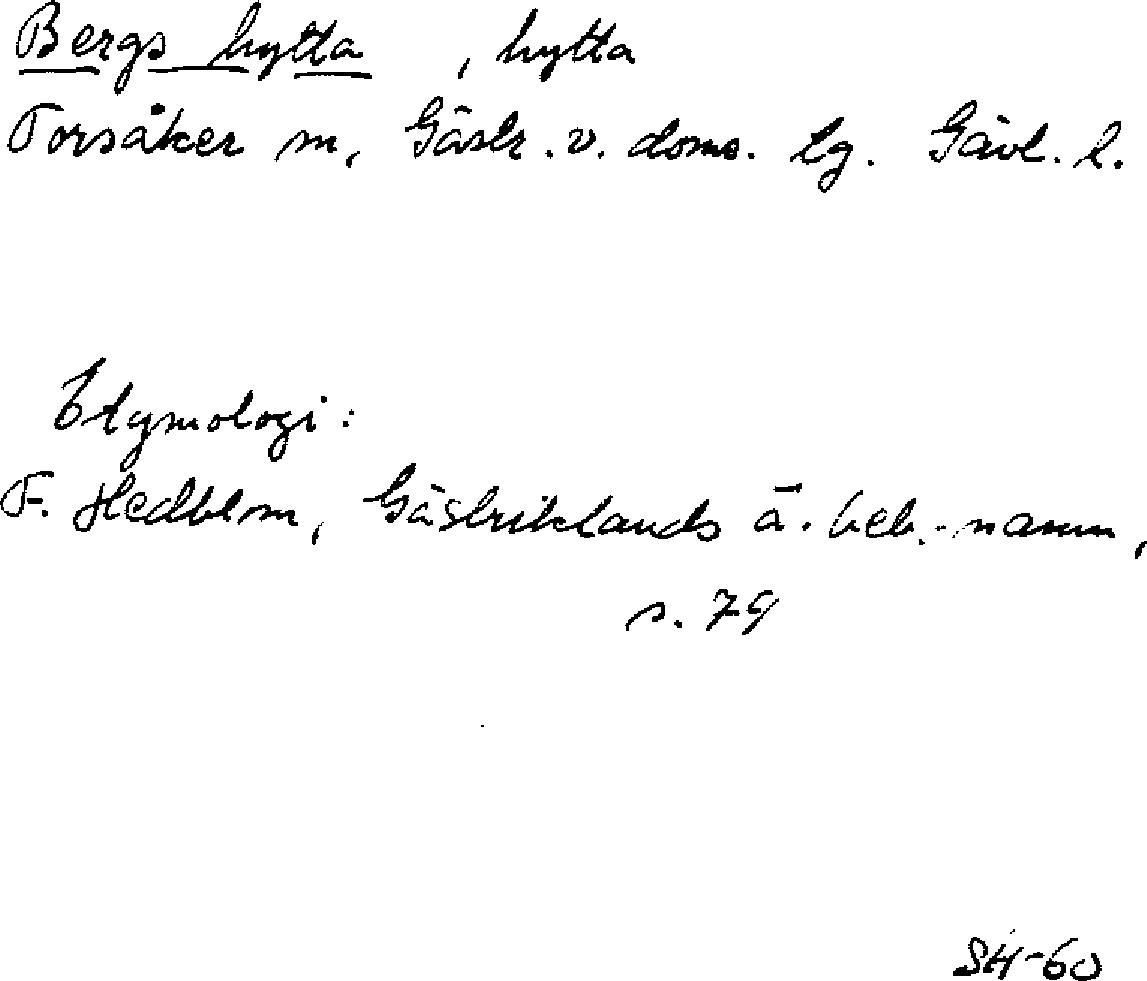 Bergs hytta , hytta
Torsåker sn, Gästr. v. doms. lg. Gävl. l.
Etymologi:
F. Hedblom, Gästriklands ä. beb.-namn,
s. 79
SH-60